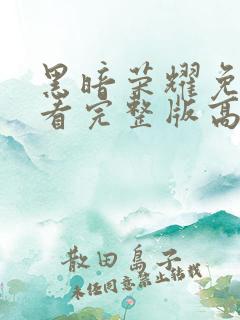 黑暗荣耀免
看完整版高
散田島子
未经同意禁止转载